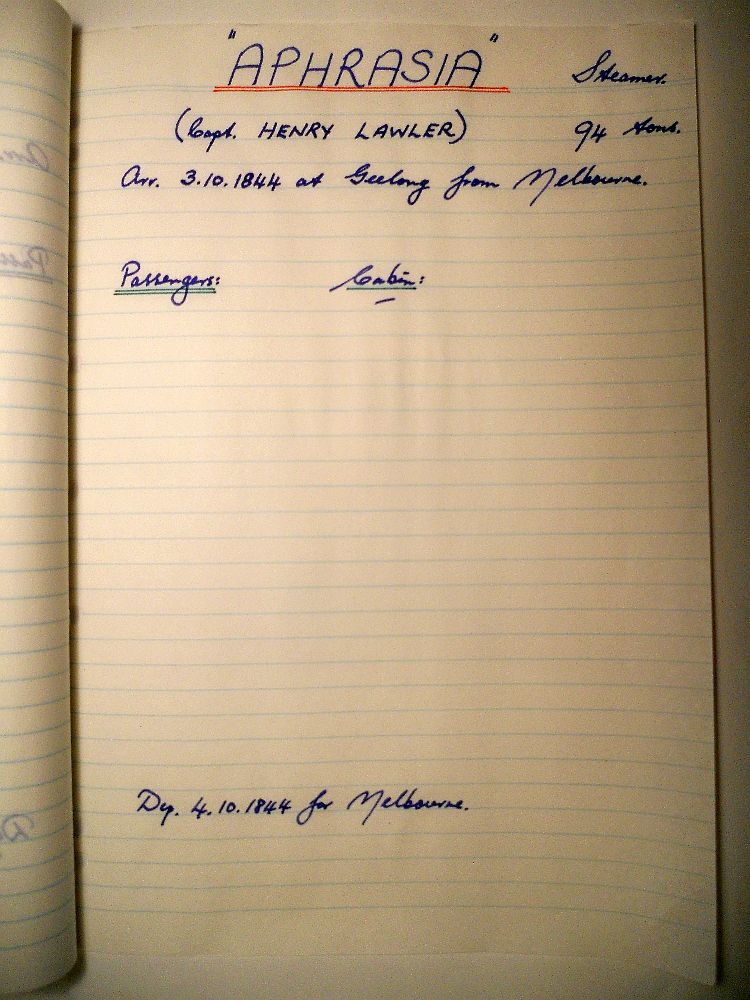 "APHRASIA" Steamer.
(Capt. HENRY LAWLER) 94 tons.
Arr. 3.10.1844 at Geelong from Melbourne.
Passengers: Cabin:
—
Dep. 4.10.1844 for Melbourne.